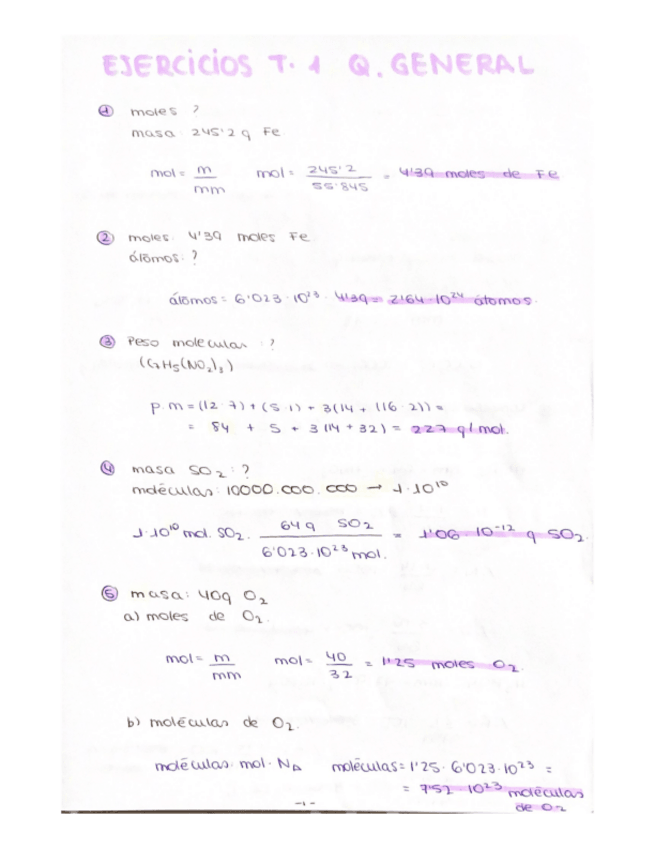 EJERCICIOS T. 1 Q. GENERAL
① moles ?
masa: 245'2 g Fe.
mol = m / mm    mol = 245'2 / 55'845 = 4'39 moles de Fe
② moles: 4'39 moles Fe
átomos: ?
átomos = 6'023 · 10²³ · 4'39 = 2'64 · 10²⁴ átomos.
③ Peso molecular : ?
(C₇H₅(NO₂)₃)
p.m = (12 · 7) + (5 · 1) + 3(14 + (16 · 2)) =
= 84 + 5 + 3(14 + 32) = 227 g/mol.
④ masa SO₂ : ?
moléculas: 10000.000.000 → 1 · 10¹⁰
1 · 10¹⁰ mol. SO₂ · 64 g SO₂ / 6'023 · 10²³ mol. = 1'06 · 10⁻¹² g SO₂.
⑤ masa: 40g O₂
a) moles de O₂.
mol = m / mm    mol = 40 / 32 = 1'25 moles O₂.
b) moléculas de O₂.
moléculas: mol · NA    moléculas = 1'25 · 6'023 · 10²³ =
= 7'52 · 10²³ moléculas
de O₂
-1-